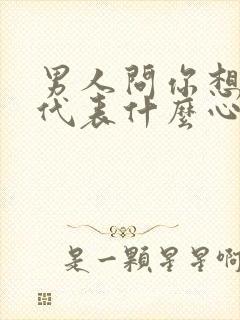 男人問你想
代表什麼心
是一顆星星啊